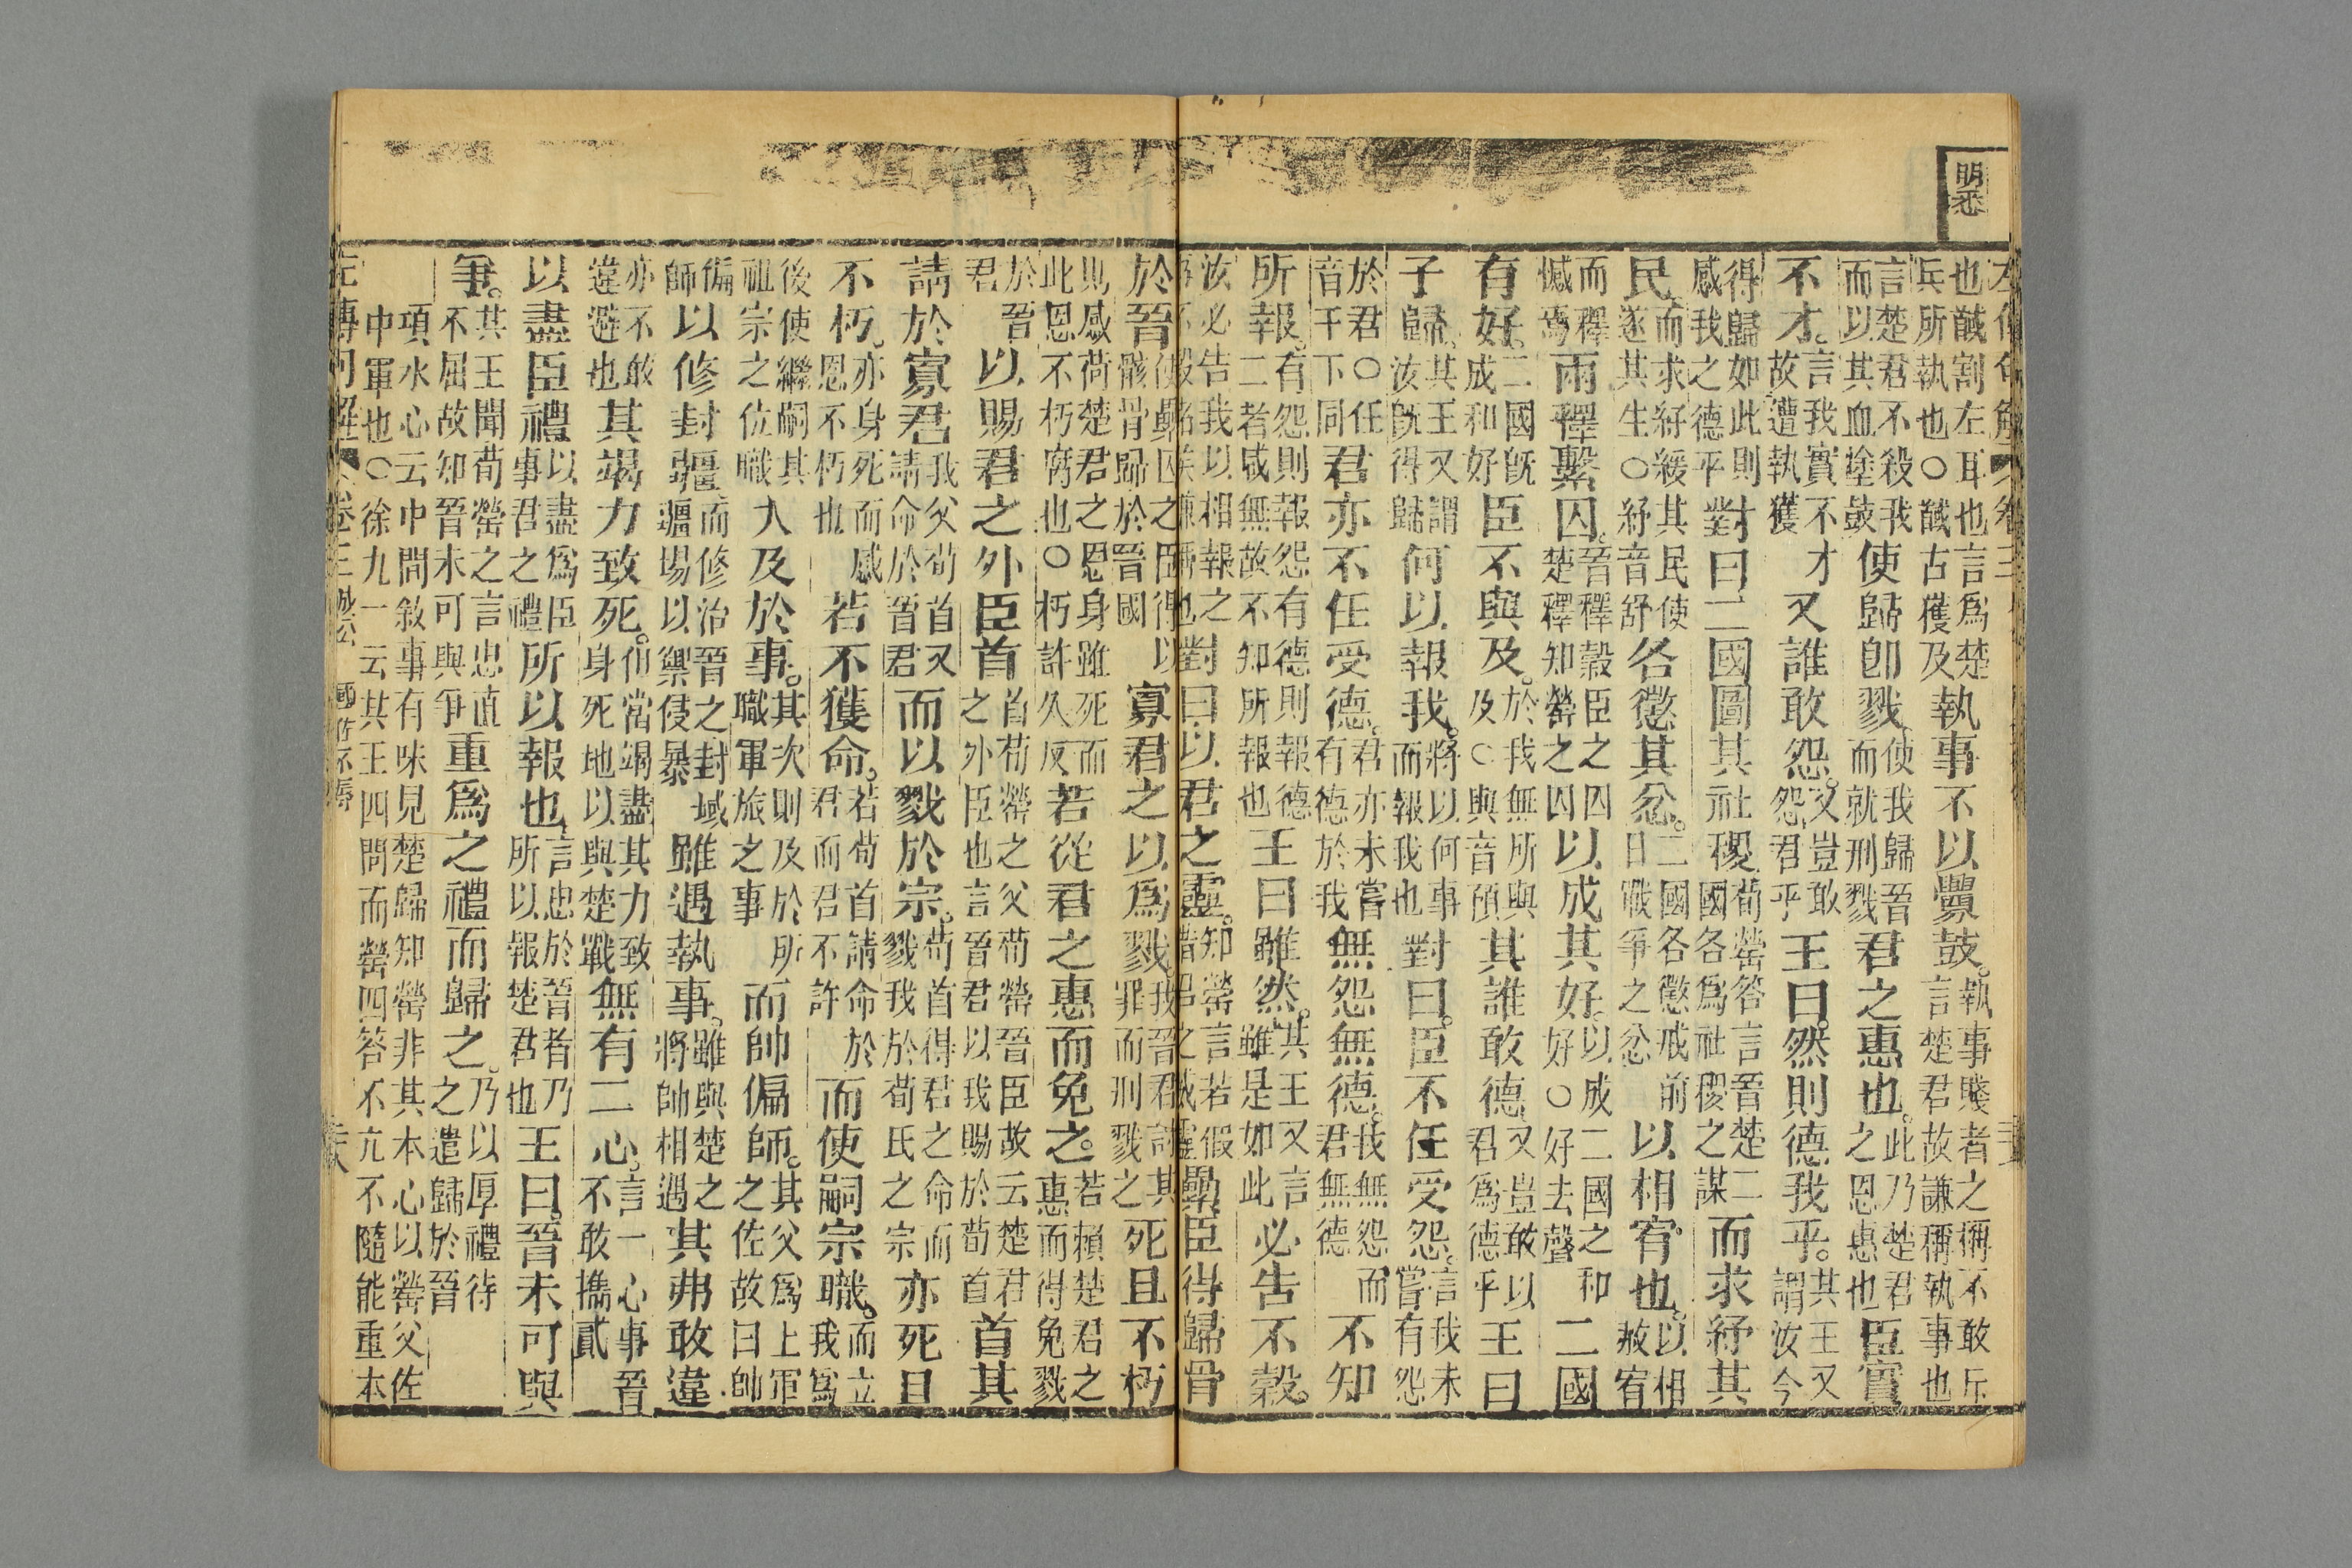 明悉
也馘割左耳也言爲楚兵所執也○馘古獲及執事不以釁鼓。執事賤者之稱不敢斥言楚君故謙稱執事也
言楚君不殺我而以其血塗鼓使歸卽戮使我歸晉而就刑戮君之惠也。此乃楚君之恩惠也臣實
不才。言我實不才故遭執獲又誰敢怨。又豈敢怨君乎王曰。然則德我乎。其王又謂汝今
得歸如此則感我之德乎對曰二國圖其社稷荀罃答言晉楚二國各爲社稷之謀而求紓其
民。而求紓緩其民使遂其生○紓音舒各懲其忿。二國各懲戒前日戰爭之忿以相宥也。以相赦宥
而釋憾焉兩釋纍囚。晉釋穀臣之囚楚釋知罃之囚以成其好。以成二國之和好○好去聲二國
有好。二國旣成和好臣不與及。於我無所與及○與音預其誰敢德又豈敢以君爲德乎王曰
子歸。其王又謂汝旣得歸何以報我。將以何事而報我也對曰。臣不任受怨。言我未嘗有怨
於君○任音干下同君亦不任受德。君亦未嘗有德於我無怨無德。我無怨而君無德不知
所報。有怨則報怨有德則報德二者咸無故不知所報也王曰雖然。其王又言雖是如此必告不穀。
汝必告我以相報之對曰以君之靈。知罃言若假借君之威靈纍臣得歸骨
於晉使纍囚之臣得以骸骨歸於晉國寡君之以爲戮我晉君討其罪而刑戮之死且不朽
則感荷楚君之恩身雖死而此恩不朽腐也○朽許久反若從君之惠而免之。若賴楚君之惠而得免戮
於晉君以賜君之外臣首首荀罃之父荀罃晉臣故云楚君之外臣也言晉君以我賜於荀首首其
請於寡君我父荀首又請命於晉君而以戮於宗。荀首得君之命而戮我於荀氏之宗亦死且
不朽。亦身死而感恩不朽也若不獲命。若荀首請命於君而君不許而使嗣宗職。而立我爲
後使繼嗣其祖宗之位職次及於事。其次則及於所職軍旅之事而帥偏師。其父爲上軍之佐故曰帥
偏師以修封疆而修治晉之封域疆場以禦侵暴雖遇執事。雖與楚之將帥相遇其弗敢違
亦不敢違避也其竭力致死。但當竭盡其力致身死地以與楚戰無有二心。言一心事晉不敢攜貳
以盡臣禮以盡爲臣事君之禮所以報也言忠於晉者乃所以報楚君也王曰。晉未可與
爭。其王聞荀罃之言忠直不屈故知晉未可與爭重爲之禮而歸之。乃以厚禮待之遣歸於晉
項水心云中間敘事有味見楚歸知罃非其本心以罃父佐
中軍也○徐九一云其王四問而罃四答不亢不隨能重本
左傳句解 卷三